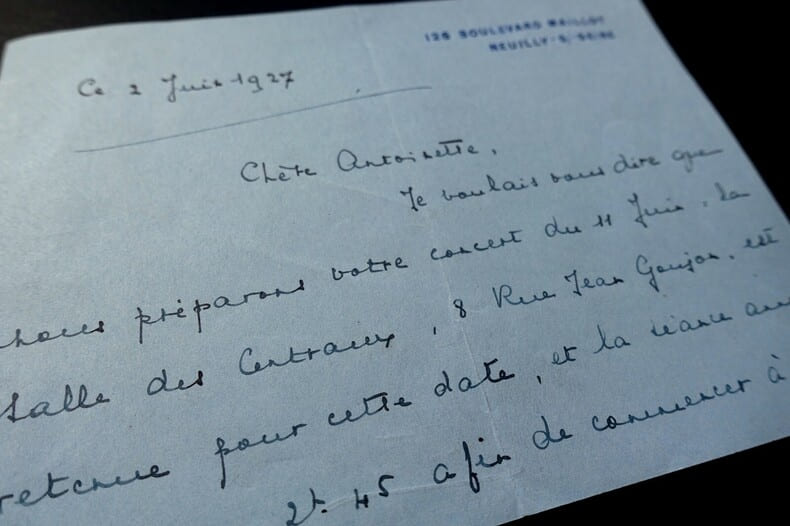 128 BOULEVARD MAILLOT
NEUILLY-S/-SEINE
Ce 2 Juin 1927
Chère Antoinette,
Je voulais vous dire que
nous préparons votre concert du 11 Juin. la
salle des Centraux, 8 Rue Jean Goujon. est
retenue pour cette date, et la séance
2h. 45 afin de commencer à